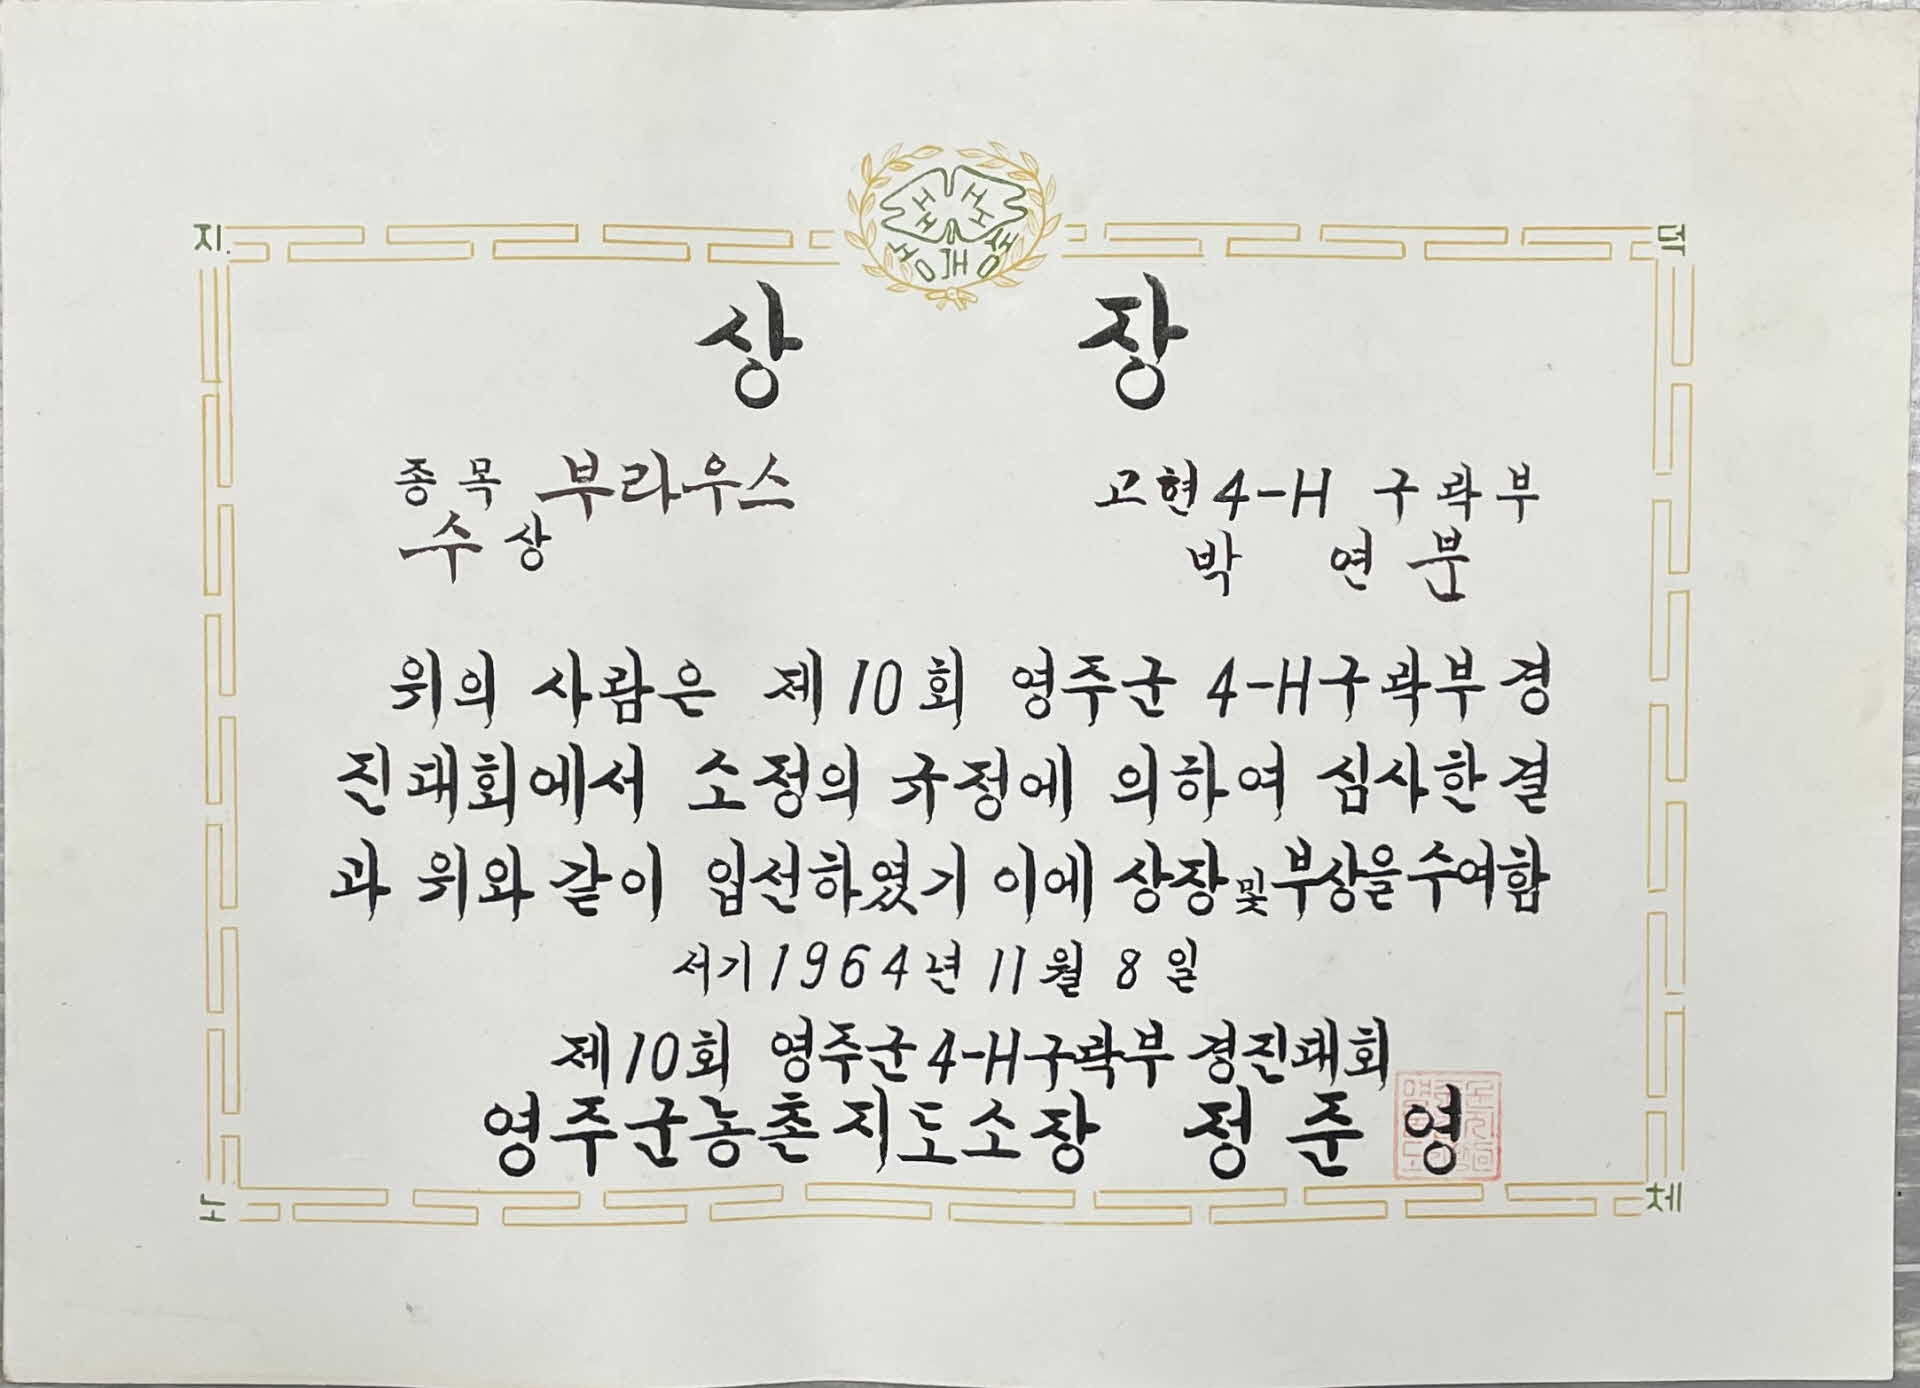 지. 덕
H H H H
상 재 생
상 장
종목 부라우스
수상
고현 4-H 구락부
박 연 분
위의 사람은 제10회 영주군 4-H구락부 경
진대회에서 소정의 규정에 의하여 심사한 결
과 위와 같이 입선하였기 이에 상장 및 부상을 수여함
서기 1964년 11월 8일
제10회 영주군4-H구락부 경진대회
영주군농촌지도소장 정준영
노 체